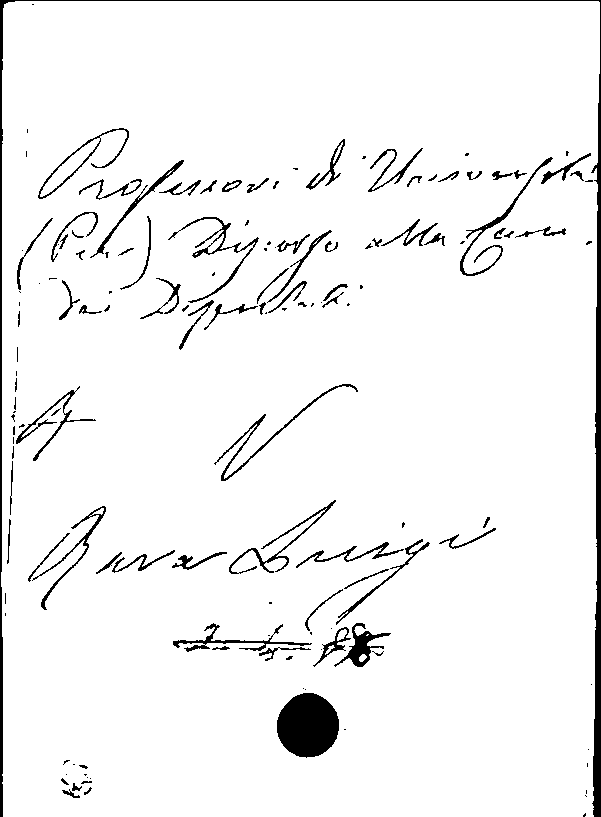 Professori di Università
(Per) Discorso alla Camera
dei Deputati
V
Rava Luigi